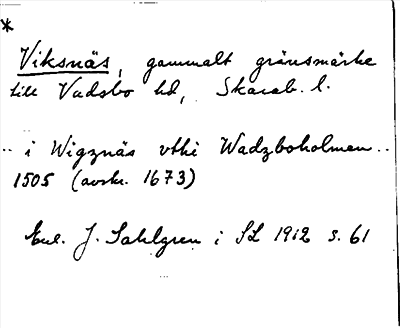 *
Viksnäs, gammalt gränsmärke
till Vadsbo hd, Skarab. l.
.. i Wigznäs vthi Wadzboholmen ..
1505 (avskr. 1673)
Enl. J. Sahlgren i SL 1912 s. 61